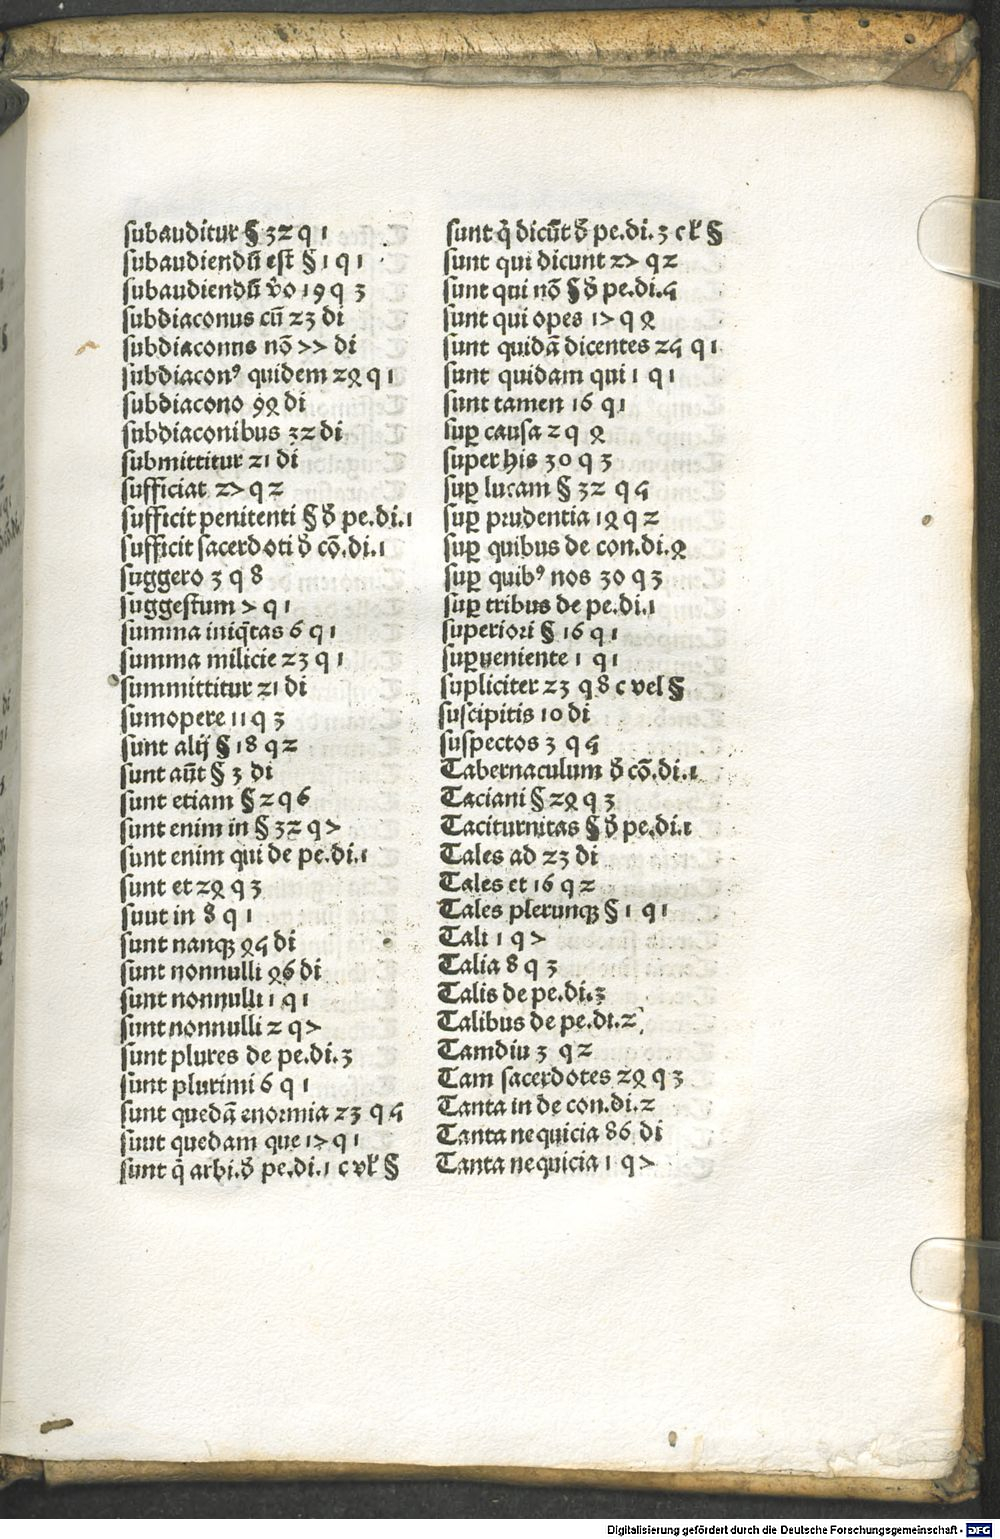 subauditur § 32 q 1
subaudiendū est § 1 q 1
subaudiendū vo 19 q 3
subdiaconus cū 23 di
subdiaconns nō 77 di
subdiaconꝰ quidem 28 q 1
subdiacono 98 di
subdiaconibus 32 di
submittitur 21 di
sufficiat 27 q 2
sufficit penitenti § đ pe.di.1
sufficit sacerdoti đ cō.di.1
suggero 3 q 8
suggestum 7 q 1
summa iniq̄tas 6 q 1
summa milicie 23 q 1
summittitur 21 di
sumopere 11 q 3
sunt alij § 18 q 2
sunt aūt § 3 di
sunt etiam § 2 q 6
sunt enim in § 32 q 7
sunt enim qui de pe.di.1
sunt et 28 q 3
suut in 8 q 1
sunt nanqꝫ 84 di
sunt nonnulli 86 di
sunt nonnulli 1 q 1
sunt nonnulli 2 q 7
sunt plures de pe.di.3
sunt plurimi 6 q 1
sunt quedā enormia 23 q 4
suut quedam que 17 q 1
sunt q̄ arbi.đ pe.di.1 c vł §
sunt q̇ dicūt đ pe.di.3 c ł §
sunt qui dicunt 27 q 2
sunt qui nō § đ pe.di.4
sunt qui opes 17 q 8
sunt quidā dicentes 24 q 1
sunt quidam qui 1 q 1
sunt tamen 16 q 1
suꝑ causa 2 q 8
super his 30 q 3
suꝑ lucam § 32 q 4
suꝑ prudentia 18 q 2
suꝑ quibus de con.di.8
suꝑ quibꝰ nos 30 q 3
suꝑ tribus de pe.di.1
superiori § 16 q 1
suꝑueniente 1 q 1
supliciter 23 q 8 c vel §
suscipitis 10 di
suspectos 3 q 4
Tabernaculum đ cō.di.1
Taciani § 28 q 3
Taciturnitas § đ pe.di.1
Tales ad 23 di
Tales et 16 q 2
Tales plerunqꝫ § 1 q 1
Tali 1 q 7
Talia 8 q 3
Talis de pe.di.3
Talibus de pe.di.2
Tamdiu 3 q 2
Tam sacerdotes 28 q 3
Tanta in de con.di.2
Tanta nequicia 86 di
Tanta nequicia 1 q 7
Digitalisierung gefördert durch die Deutsche Forschungsgemeinschaft - DFG